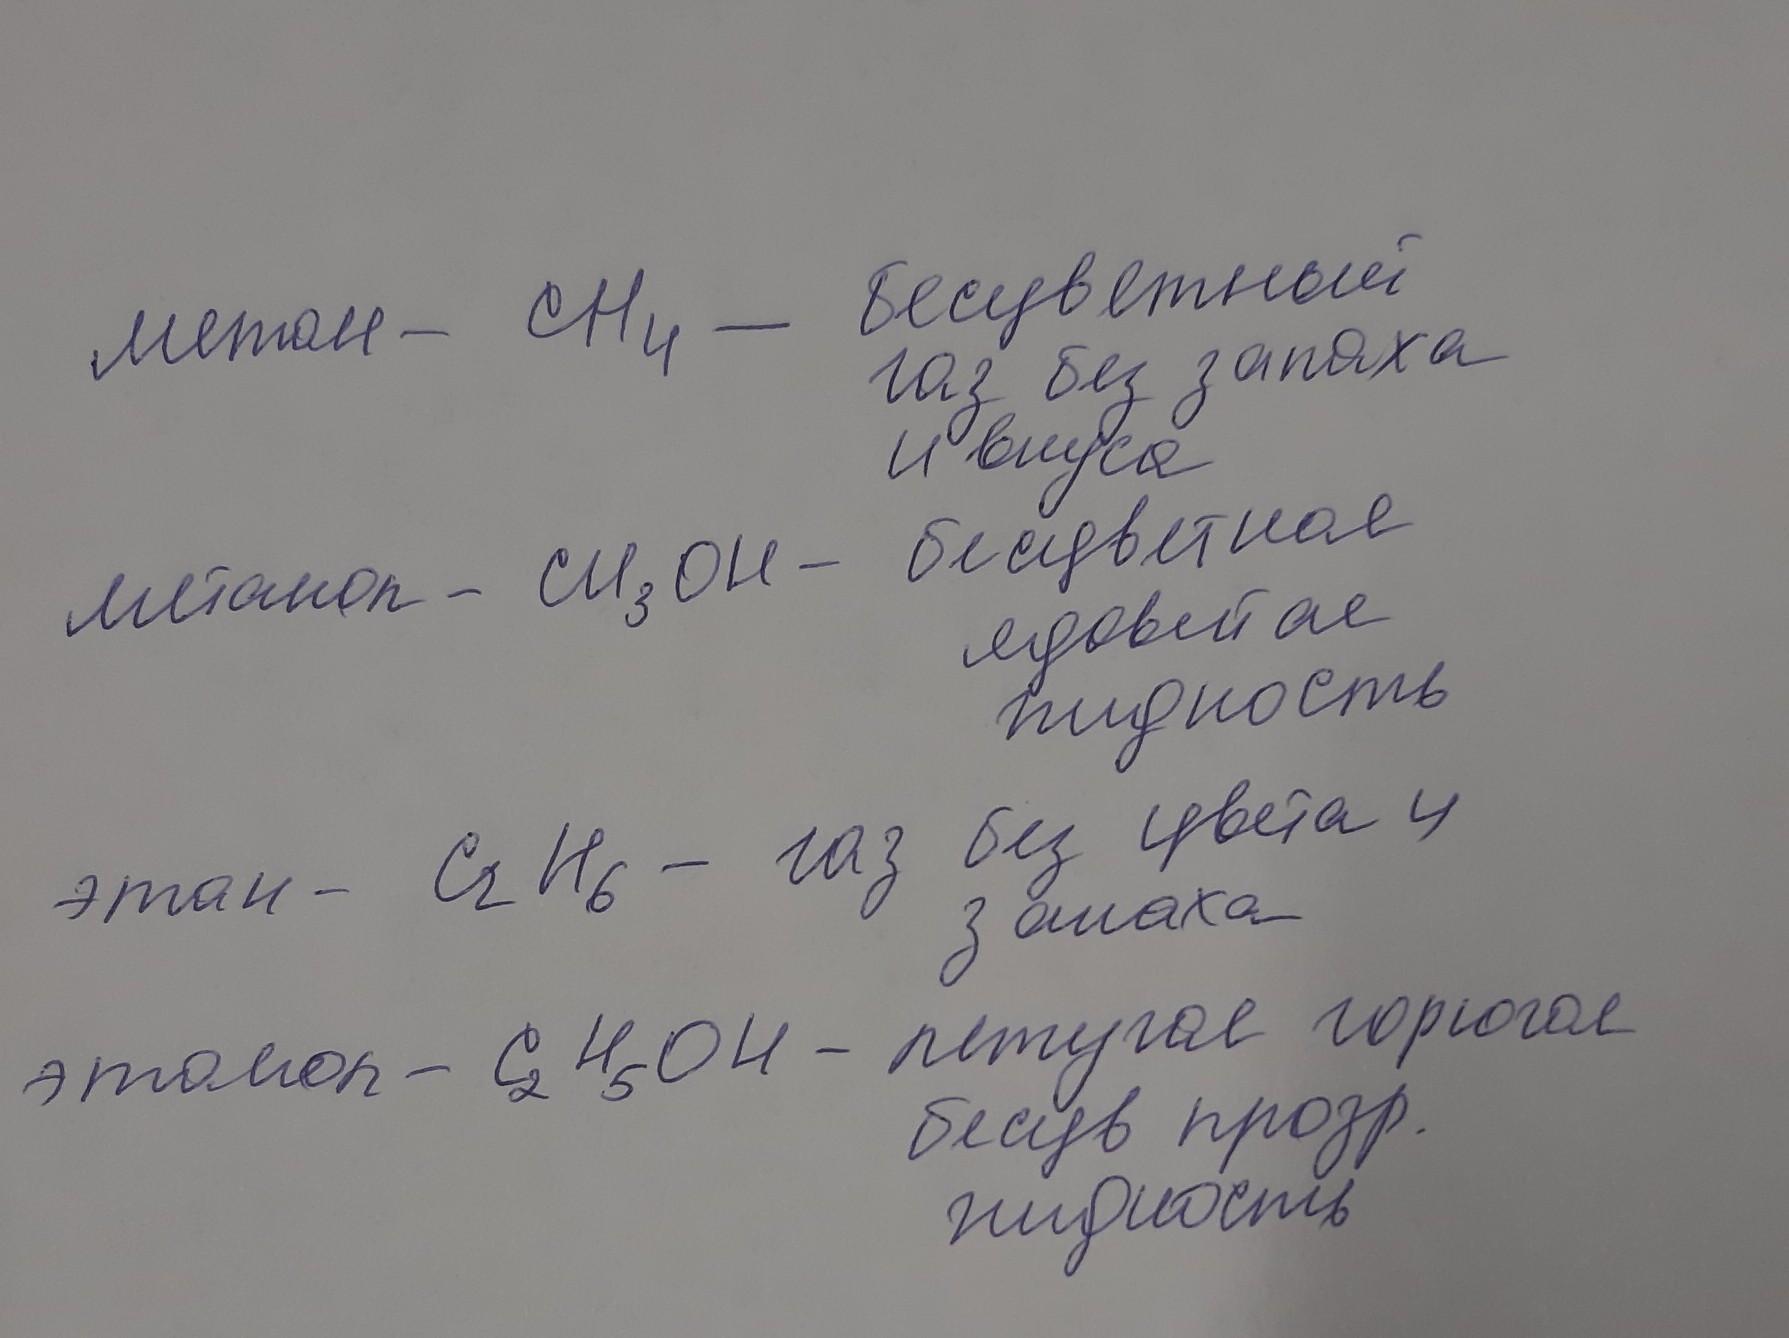 метан - CH₄ — бесцветный
газ без запаха
и вкуса
метанол - CH₃OH - бесцветная
ядовитая
жидкость
этан - C₂H₆ - газ без цвета и
запаха
этанол - C₂H₅OH - летучая горючая
бесцв прозр.
жидкость